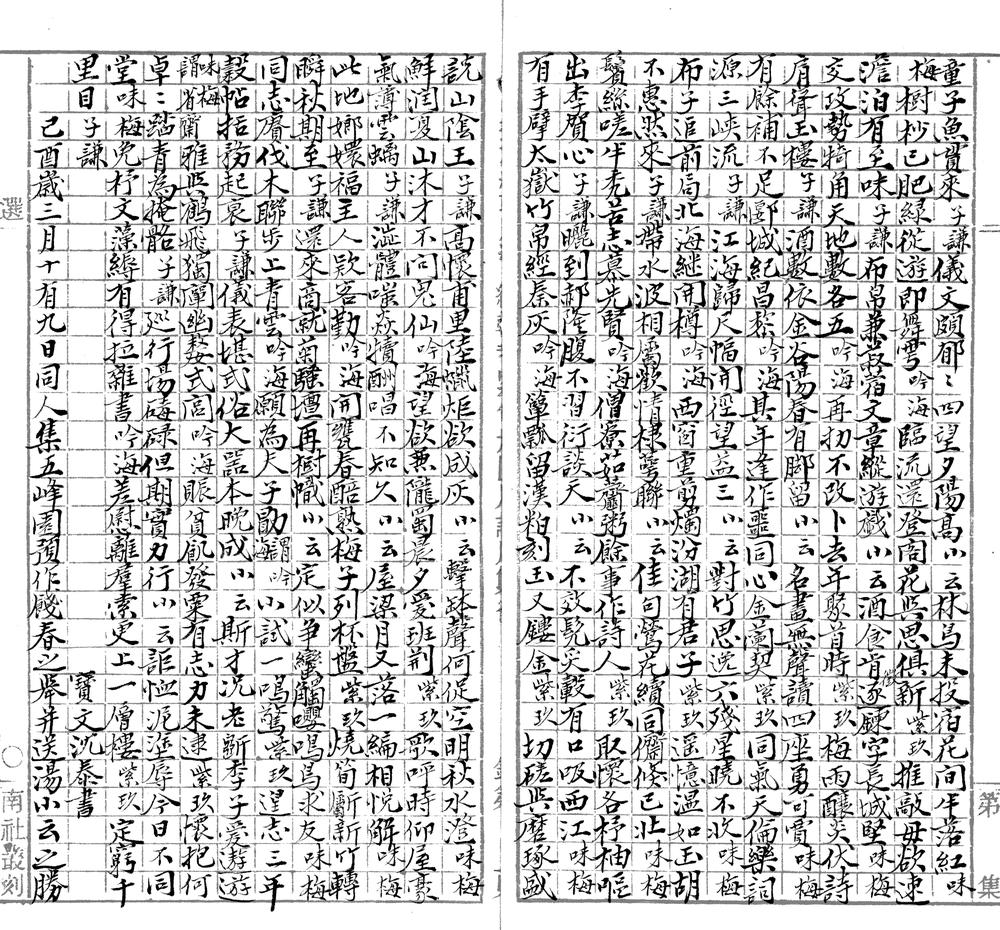 童子魚貫來子謙儀文頗郁〻四望夕陽高小云林鳥未投宿花間半落紅味
梅樹杪已肥綠從游即舞雩吟海臨流還登閣花與思俱新紫玖推敲毋欲速
澹泊有至味子謙布帛兼菽宿文章縱游戲小云酒食肯逐鍊字長城堅味梅
交攻勢犄角天地數各五吟海再扐不改卜去年聚首時紫玖梅雨釀炎伏詩
肩聳玉樓子謙酒數依金谷陽春有脚留小云名畫無聲讀四座勇可賈味梅
有餘補不足郢城紀昌黎吟海其年逢作噩同心金蘭契紫玖同氣天倫樂詞
源三峽流子謙江海歸尺幅開徑望益三小云對竹思逸六殘星曉不收味梅
布子追前局北海繼開樽吟海西窗重剪燭汾湖有君子紫玖遥憶溫如玉胡
不惠然來子謙帶水波相屬歡情棣萼聯小云佳句鶯花續同儕倏已壯味梅
鬢絲嗟半禿苦志慕先賢吟海僧寮茹虀粥餘事作詩人紫玖取懷各杼柚嘔
出李賀心子謙曬到郝隆腹不習衍談天小云不效髡炙轂有口吸西江味梅
有手擘太嶽竹帛經秦灰吟海簞瓢留漢粕刻玉又鏤金紫玖切磋與磨琢盛
說山陰王子謙高懷甫里陸蠟炬欲成灰小云擊鉢聲何促空明秋水澄味梅
鮮潤夏山沐才不同鬼仙吟海望欲兼隴蜀晨夕愛班荆紫玖歌呼時仰屋豪
氣薄雲螭子謙澁體嗤焱犢酬唱不知久小云屋梁月又落一編相悅解味梅
此地嫏嬛福主人欵客勤吟海開甕春醅熟梅子列杯盤紫玖燒筍斸新竹轉
瞬秋期至子謙還來商就菊騷壇再樹幟小云定似爭蠻觸嚶鳴鳥求友味梅
同志賡伐木聯步上青雲吟海願為夫子勖謂吟海小試一鳴驚紫玖望志三年
穀帖括務起衰子謙儀表堪式俗大器本晚成小云斯才况老斵李子愛遨遊
謂味梅省齋雅與鶴飛獨闡幽嫠式閭吟海賑貧飢發粟有志力未逮紫玖懷抱何
卓〻踏青為掩骼子謙巡行塲磽碌但期實力行小云詎恤泥塗辱今日不同
堂味梅免杼文藻縟有得拉雜書吟海差慰離羣索更上一層樓紫玖定窮千
里目子謙
寶文沈泰書
己酉歲三月十有九日同人集五峰園預作餞春之舉并送湯小云之勝
二
第
集
選
南社叢刻